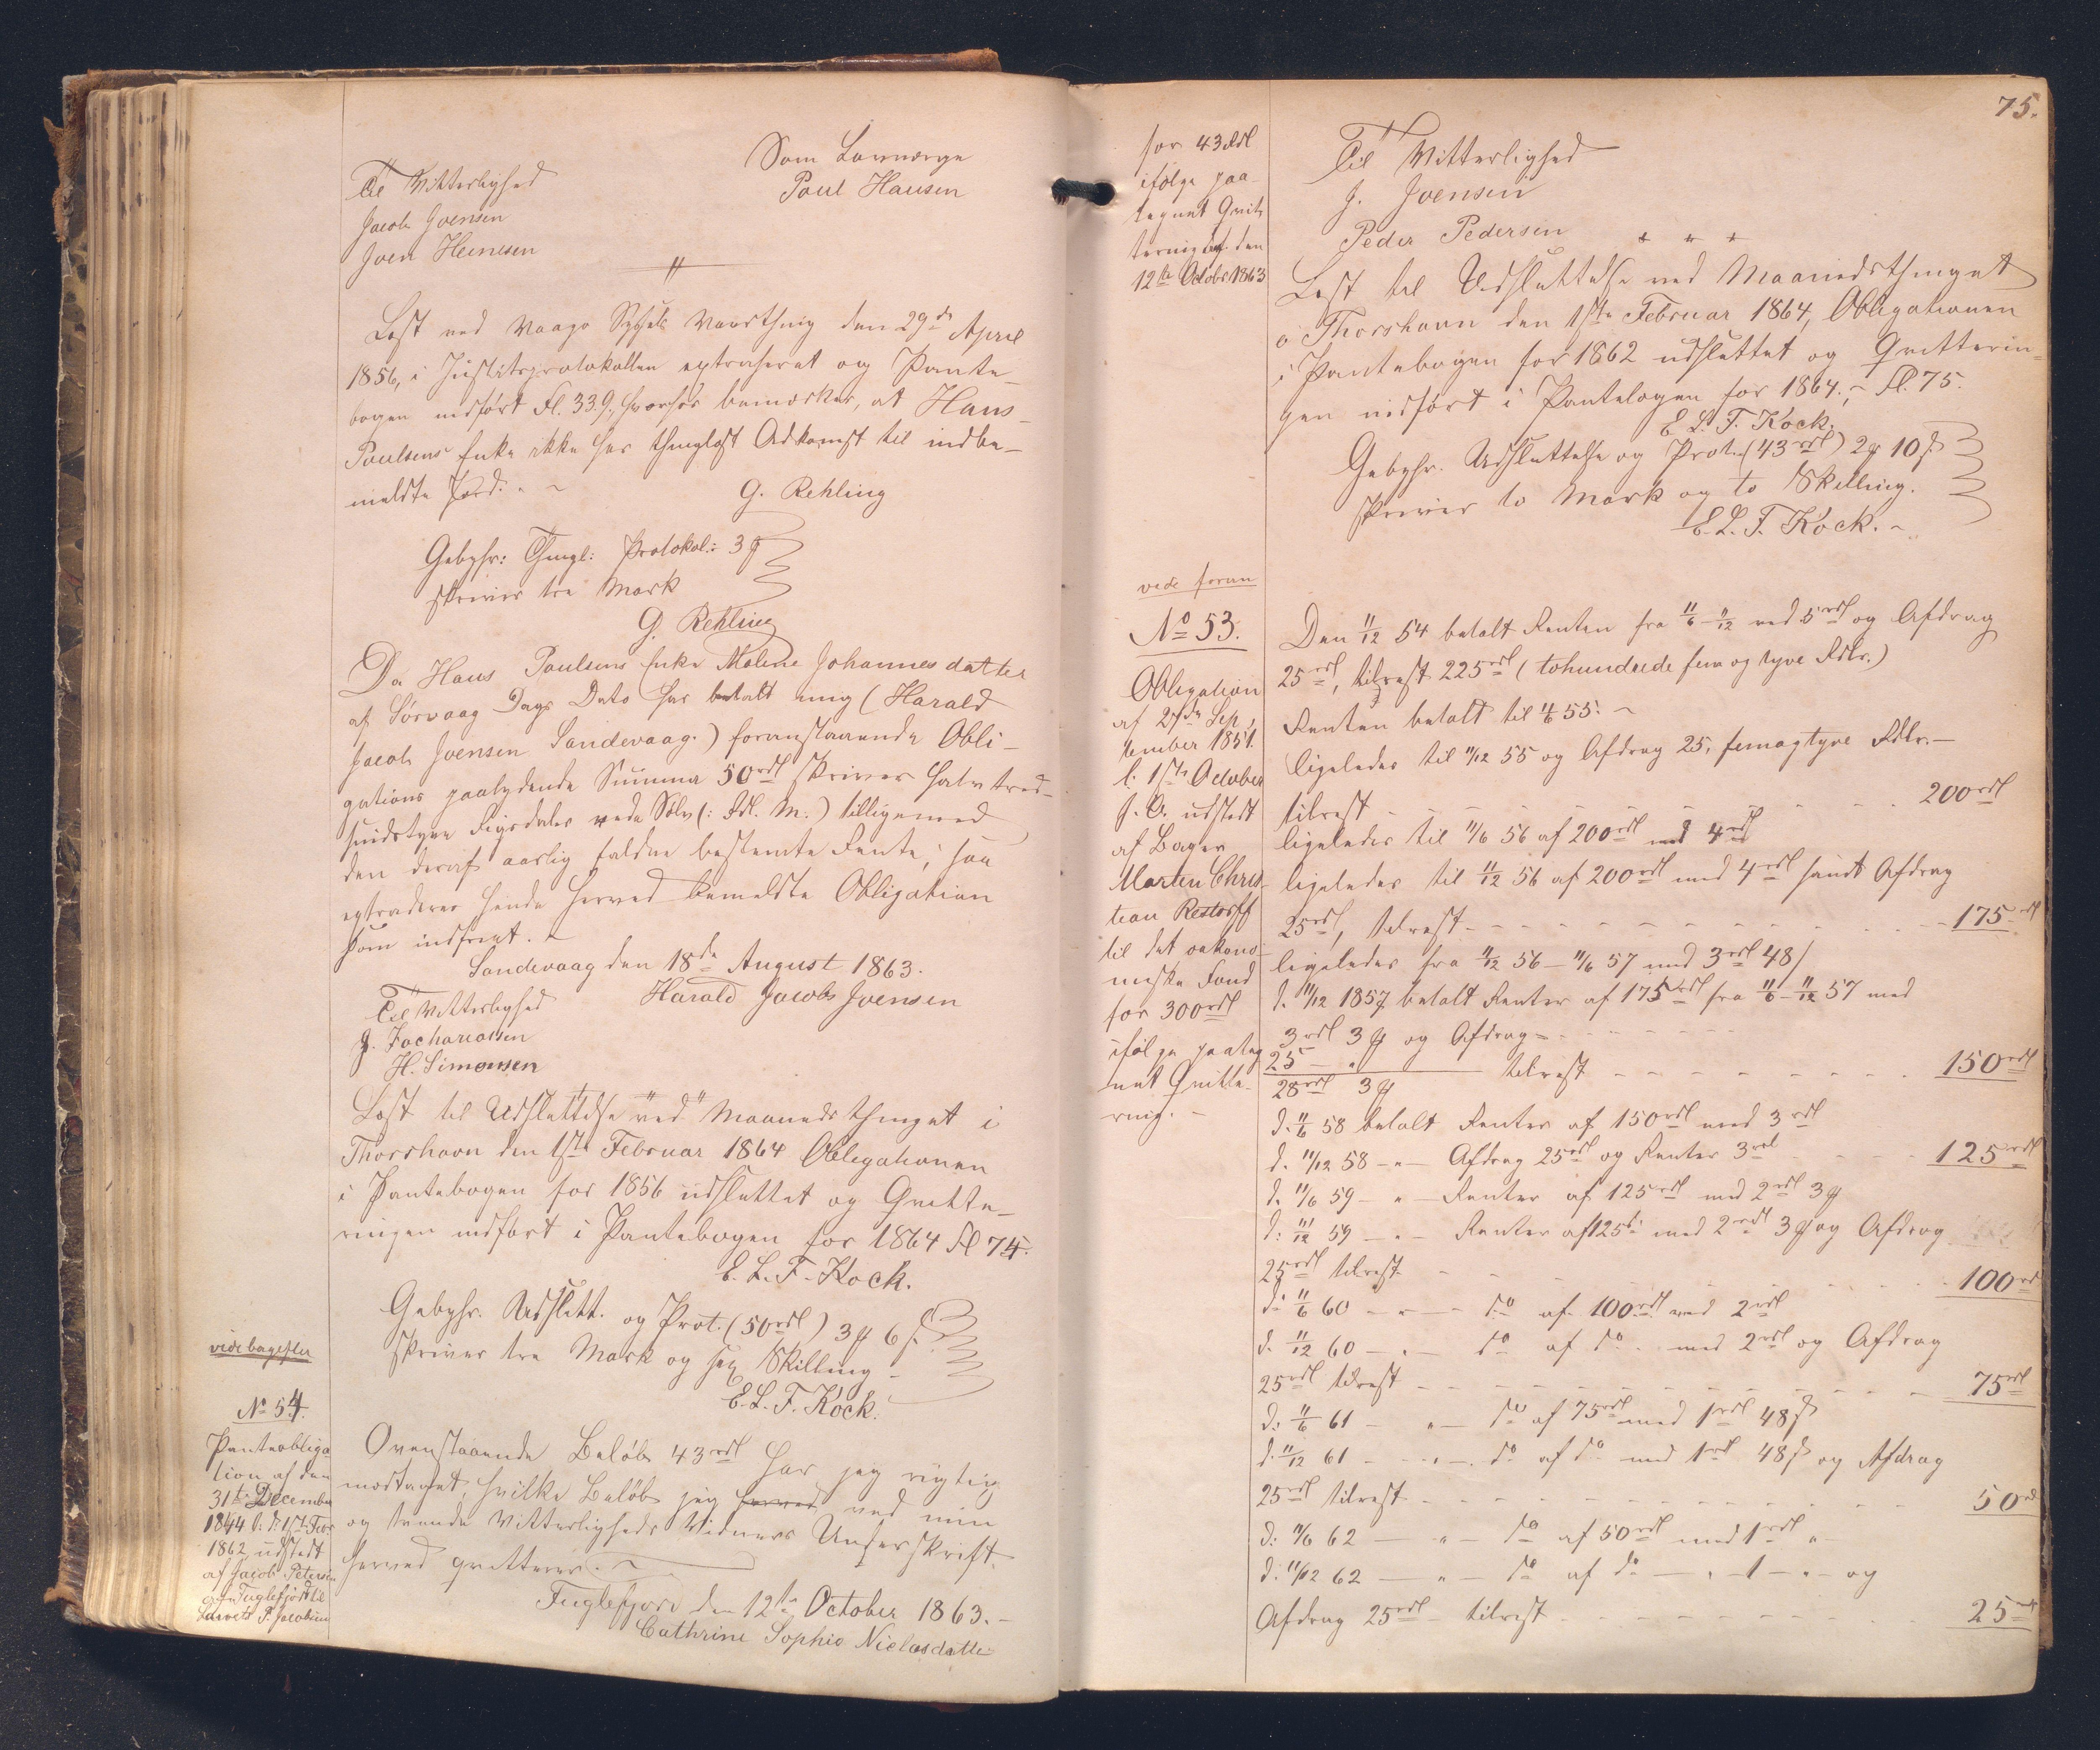 Som Lavværge
Poul Hansen
Til Vitterlighed
Jacob Joensen
Joen Heinesen
Læst ved Vaagø Syssels Vaarthing den 29de April
1856, i Justitsprotokollen extraheret og Pante-
bogen indført Fol. 339, hvorhos bemærkes, at Hans
Poulsens Enke ikke har thinglæst Adkomst til indbe-
meldte Jord. -
G. Rehling
Gebyhr: Thingl: Protokol: 3 ₰
skriver tre Mark
G. Rehling
Da Hans Poulsens Enke Malene Johannesdatter
af Sørvaag Dags Dato har betalt mig (Harald
Jacob Joensen Sandevaag.) foranstaaende Obli-
gations paalydende Summa 50 rdl skriver halvtred-
sindstyve Rigsdaler rede Sølv (: Rdl. M.) tilligemed
den deraf aarlig faldne bestemte Rente, saa
extraderes hende herved bemeldte Obligation
som indfriet. -
Sandevaag den 18de August 1863.
Harald Jacob Joensen
Til Vitterlighed
J. Zachariasen
H. Simonsen
Læst til Udslettelse ved Maanedsthinget i
Thorshavn den 1ste Februar 1864 Obligationen
i Pantebogen for 1856 udslettet og Qvitte-
ringen indført i Pantebogen for 1864 Fol 74.
E. L. F. Kock.
Gebyhr. Udslett. og Prot. (50 rdl) 3 ₰ 6 s.
skriver tre Mark og sex Skilling -
E. L. F. Kock.
vide bagefter
No 54.
Panteobliga-
tion af den
31te December
1844 l: d: 1ste Febr
1862 udstedt
af Jacob Petersen
Fuglefjord til
P. Jacobsen
Ovenstaaende Beløb 43 rdl har jeg rigtig
modtaget, hvilke Beløb jeg herved ved min
og tvende Vitterligheds Vidners Underskrift
herved qvitterer. -
Fuglefjord den 12te October 1863. -
Cathrine Sophie Niclasdatter
75.
for 43 Rdl
ifølge paa-
tegnet Qvit-
tering af den
12te Octobr. 1863
Til Vitterlighed
J. Joensen
Peder Pedersen
Læst til Udslettelse ved Maanedsthinget
i Thorshavn den 1ste Februar 1864, Obligationen
i Pantebogen for 1862 udslettet og Qvitterin-
gen indført i Pantebogen for 1864. - Fol. 75.
E. L. F. Kock.
Gebyhr. Udslettelse og Prot. (43 rdl) 2 ₰ 10 s.
skriver to Mark og to Skilling.
E. L. F. Kock. -
vide foran
No 53.
Obligation
af 27de Sep-
tember 1851.
l: 1ste October
s. A. udstedt
af Bager
Marten Chris-
tian Restorff
til det oekono-
miske Fond
for 300 rdl
ifølge paateg-
net Qvitte-
ring. -
Den 11/12 54 betalt Renten fra 11/6 - 11/12 med 5 rdl og Afdrag
25 rdl, tilrest 225 rdl (tohundrede fem og tyve Rdlr.)
Renten betalt til 11/6 55. -
ligeledes til 11/12 55 og Afdrag 25, femogtyve Rdlr. -
tilrest - - - - 200 rdl
ligeledes til 11/6 56 af 200 rdl med 4 rdl
ligeledes til 11/12 56 af 200 rdl med 4 rdl samt Afdrag
25 rdl, tilrest - - - - 175 rdl
ligeledes fra 11/12 56 - 11/6 57 med 3 rdl 48 s
d. 11/12 1857 betalt Renter af 175 rdl fra 11/6 - 11/12 57 med
3 rdl 3 ₰ og Afdrag - - - -
25 - "
28 rdl 3 ₰ tilrest - - - - 150 rdl
d. 11/6 58 betalt Renter af 150 rdl med 3 rdl
d. 11/12 58 - " - Afdrag 25 rdl og Renter 3 rdl - - - 125 rdl
d. 11/6 59 - " - Renter af 125 rdl med 2 rdl 3 ₰
d: 11/12 59 - " - Renter af 125 rdl med 2 rdl 3 ₰ og Afdrag
25 rdl tilrest - - - - 100 rdl
d: 11/6 60 - " - do af 100 rdl med 2 rdl
d. 11/12 60 - " - do af do med 2 rdl og Afdrag
25 rdl tilrest - - - - 75 rdl
d: 11/6 61 - " - do af 75 rdl med 1 rdl 48 s
d. 11/12 61 - " - do af do med 1 rdl 48 s og Afdrag
25 rdl tilrest - - - - 50 rdl
d: 11/6 62 - " - do af 50 rdl med 1 rdl "
d: 11/12 62 - " - do af do - " - 1 - " - og
Afdrag 25 rdl - tilrest - - - - 25 rdl